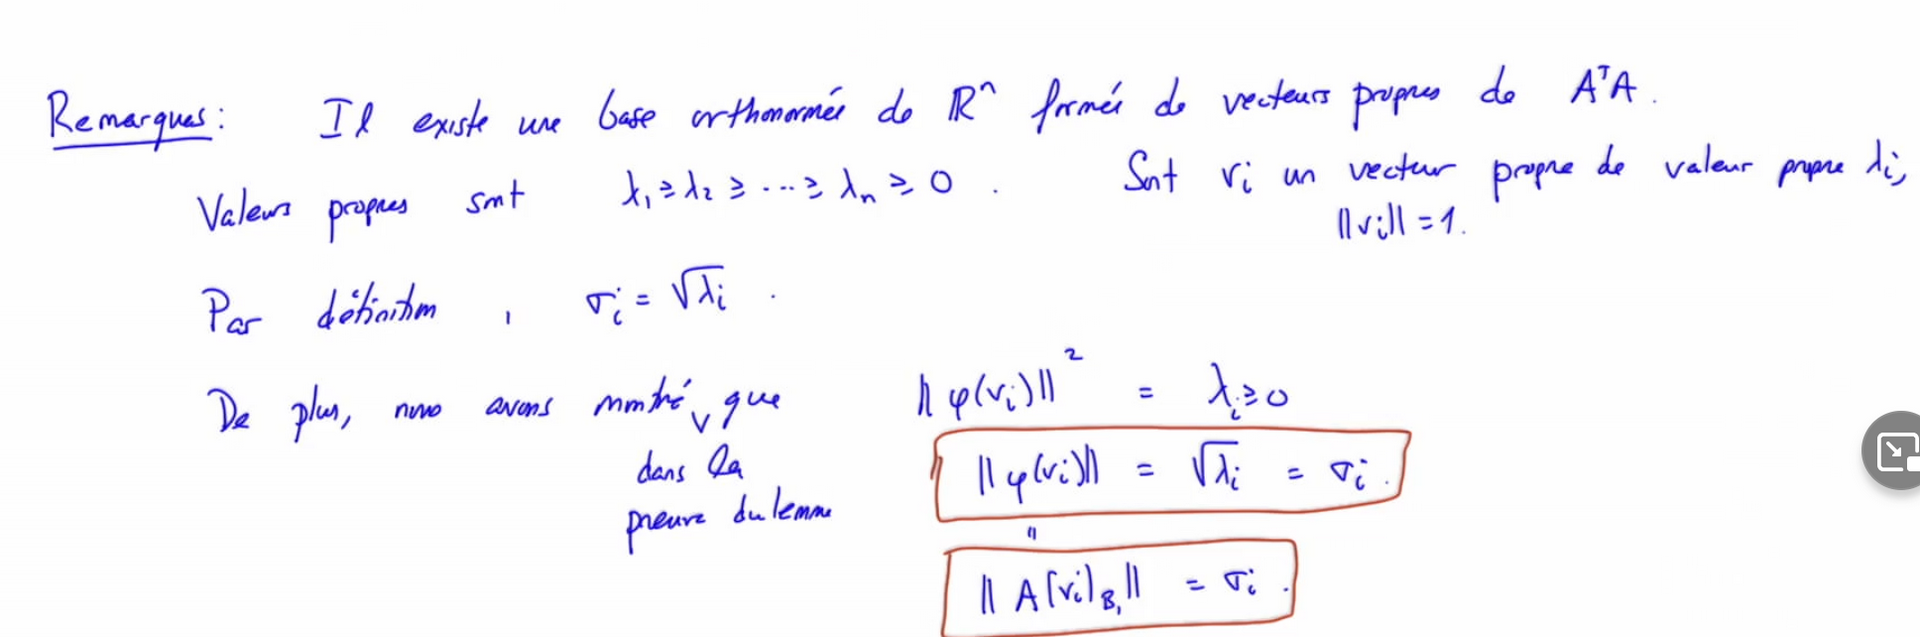 Remarques : Il existe une base orthonormée de ℝⁿ formée de vecteurs propres de AᵀA.
Valeurs propres sont λ₁ ≥ λ₂ ≥ ... ≥ λₙ ≥ 0 . Soit vᵢ un vecteur propre de valeur propre λᵢ,
||vᵢ|| = 1.
Par définition , σᵢ = √λᵢ .
De plus, nous avons montré que ||φ(vᵢ)||² = λᵢ ≥ 0
dans la ||φ(vᵢ)|| = √λᵢ = σᵢ .
preuve du lemme
"
|| A[vᵢ]_B₁ || = σᵢ .